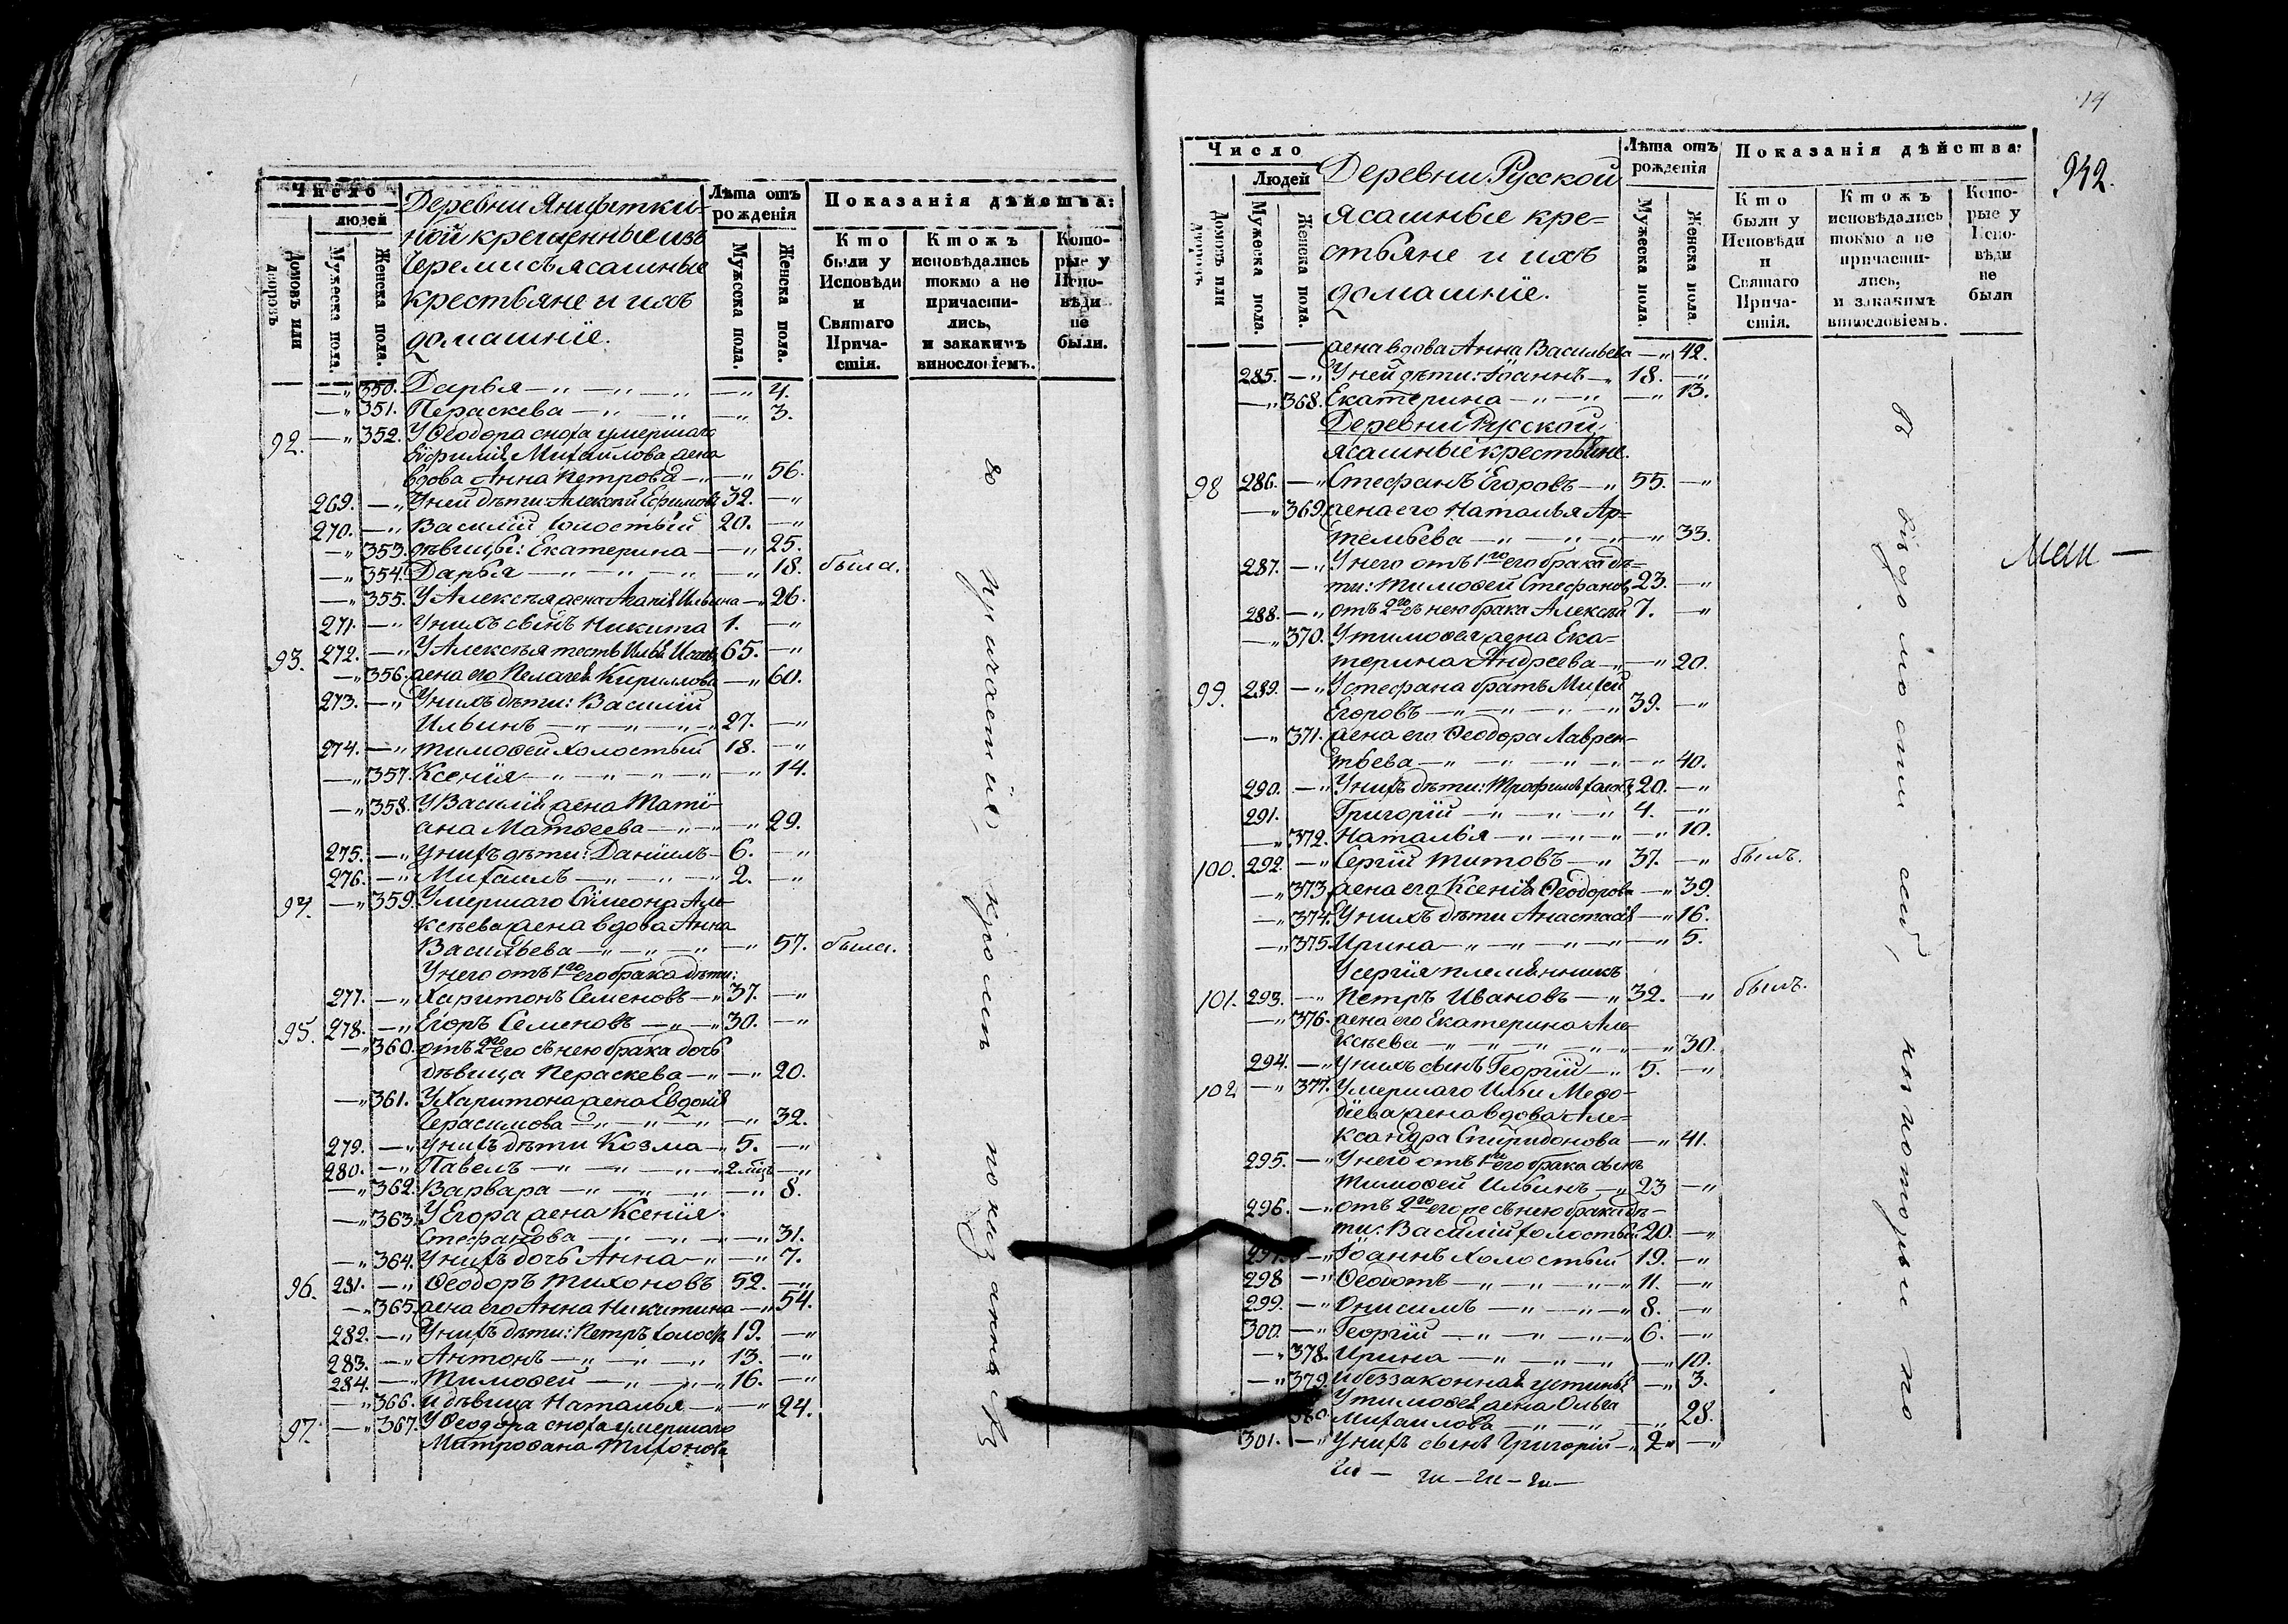 Число
людей
Домовъ или дворовъ
Мужеска пола.
Женска пола.
Деревни Янифтки-
ной крещенные изъ
Черемисъ ясашные
крестьяне и ихъ
домашніе.
Лѣта отъ рожденія
Мужеска пола.
Женска пола.
Показанія дѣйства:
Кто были у Исповѣди и Святаго Причастія.
Ктожъ исповѣдались токмо а не причастились, и закакимъ винословіемъ.
Которые у Исповѣди не были.
—„ 350. Дарья —„ —„ —„ —„ 4.
—„ 351. Пераскева —„ —„ —„ 3.
92. —„ 352. У Ѳеодора сноха умершаго
Михаилова жена
вдова Анна Петрова —„ —„ 56.
269. —„ У ней дѣти: Алексѣй Ефимовъ 32. —„
270. —„ Василій холостый 20. —„
—„ 353. дѣвицы: Екатерина —„ 25.
—„ 354. Дарья —„ —„ —„ —„ 18. была.
—„ 355. У Алексѣя жена Агапія Ильина —„ 26.
271. —„ У нихъ сынъ Никита 1. —„
93. 272. —„ У Алексѣя тесть Илья 65. —„
—„ 356. жена его Пелагея Кирилова —„ 60.
273. —„ У нихъ дѣти: Василій
Ильинъ —„ —„ —„ —„ 27. —„
274. —„ Тимоѳей холостый 18. —„
—„ 357. Ксенія —„ —„ —„ —„ —„ 14.
—„ 358. У Василія жена Тати-
ана Матѳеева —„ —„ —„ 29.
275. —„ У нихъ дѣти: Даніилъ 6. —„
276. —„ Михаилъ —„ —„ —„ 2. —„
94. —„ 359. Умершаго Сѵмеона Але-
ксѣева жена вдова Анна
Васильева —„ —„ —„ —„ 57. была.
У него отъ 1го его брака дѣти:
277. —„ Харитонъ Семеновъ —„ 37. —„
95. 278. —„ Егоръ Семеновъ —„ —„ 30. —„
—„ 360. отъ 2го его съ нею брака дочь
дѣвица Пераскева —„ —„ 20.
—„ 361. У Харитона жена Евдокія
Герасимова —„ —„ —„ —„ 32.
279. —„ У нихъ дѣти Козма —„ 5. —„
280. —„ Павелъ —„ —„ —„ 2. мѣц. —„
—„ 362. Варвара —„ —„ —„ —„ 8.
—„ 363. У Егора жена Ксенія
Стефанова —„ —„ —„ —„ 31.
—„ 364. У нихъ дочь Анна —„ —„ 7.
96. 281. —„ Ѳеодоръ Тихоновъ 52. —„
—„ 365. жена его Анна Никитина —„ 54.
282. —„ У нихъ дѣти: Петръ холост. 19. —„
283. —„ Антонъ —„ —„ —„ 13. —„
284. —„ Тимоѳей —„ —„ —„ 16. —„
—„ 366. и дѣвица Наталья —„ —„ 24.
97. —„ 367. У Ѳеодора сноха умершаго
Митрофана Тихонова
ю причастію, кромѣ показанныхъ
14
942.
Число
Людей
Домовъ или дворовъ
Мужеска пола.
Женска пола.
Деревни Русской
ясашные кре=
стьяне и ихъ
домашніе.
Лѣта отъ рожденія
Мужеска пола.
Женска пола.
Показанія дѣйства:
Кто были у Исповѣди и Святаго Причастія.
Ктожъ исповѣдались токмо а не причастились, и закакимъ винословіемъ.
Которые у Исповѣди не были
жена вдова Анна Васильева —„ 42.
285. —„ У ней дѣти: Іоаннъ —„ 18. —„
—„ 368. Екатерина —„ —„ —„ 13.
Деревни Русской,
ясашные крестьяне.
98 286. —„ Стефанъ Егоровъ —„ 55. —„
—„ 369. жена его Наталья Ар=
тельева —„ —„ —„ —„ 33.
287. —„ У него отъ 1го его брака дѣ=
ти: Тимоѳей Стефановъ 23. —„
288. —„ отъ 2го съ нею брака Алексѣй 7. —„
—„ 370. У Тимоѳея жена Ека-
терина Андреева —„ —„ 20.
99. 289. —„ У Стефана братъ Михей
Егоровъ —„ —„ —„ —„ 39. —„
—„ 371. жена его Ѳеодора Лаврен-
тьева —„ —„ —„ —„ —„ 40.
290. —„ У нихъ дѣти: Трофимъ холост. 20. —„
291. Григорій —„ —„ —„ 4. —„
—„ 372. Наталья —„ —„ —„ —„ 10.
100. 292. —„ Сергій Титовъ —„ 37. —„ былъ.
—„ 373. жена его Ксенія Ѳеодорова —„ 39.
—„ 374. У нихъ дѣти Анастасія —„ 16.
—„ 375. Ирина —„ —„ —„ —„ —„ 5.
У Сергія племянникъ
101. 293. —„ Петръ Ивановъ —„ 32. —„ былъ.
—„ 376. жена его Екатерина Але-
ксѣева —„ —„ —„ —„ —„ 30.
294. —„ У нихъ сынъ Георгій —„ 5. —„
102 —„ 377. Умершаго Ильи Меѳо-
діева жена вдова Але=
ксандра Спиридонова —„ 41.
295. —„ У ней отъ 1го его брака сынъ
Тимоѳей Ильинъ —„ 23 —„
296. —„ отъ 2го его же съ нею брака дѣ-
ти: Василій холостый 20. —„
297. —„ Іоаннъ холостый 19. —„
298 —„ Ѳеодотъ —„ —„ —„ 11. —„
299. —„ Онисимъ —„ —„ —„ 8. —„
300. —„ Георгій —„ —„ —„ 6. —„
—„ 378. Ирина —„ —„ —„ —„ 10.
—„ 379. и беззаконная Устинья —„ 3.
У Тимоѳея жена Ольга
380. Михаилова —„ —„ —„ 28.
301. —„ У нихъ сынъ Григорій —„ 2„ —„
въ вѣдомости сей,
которые по